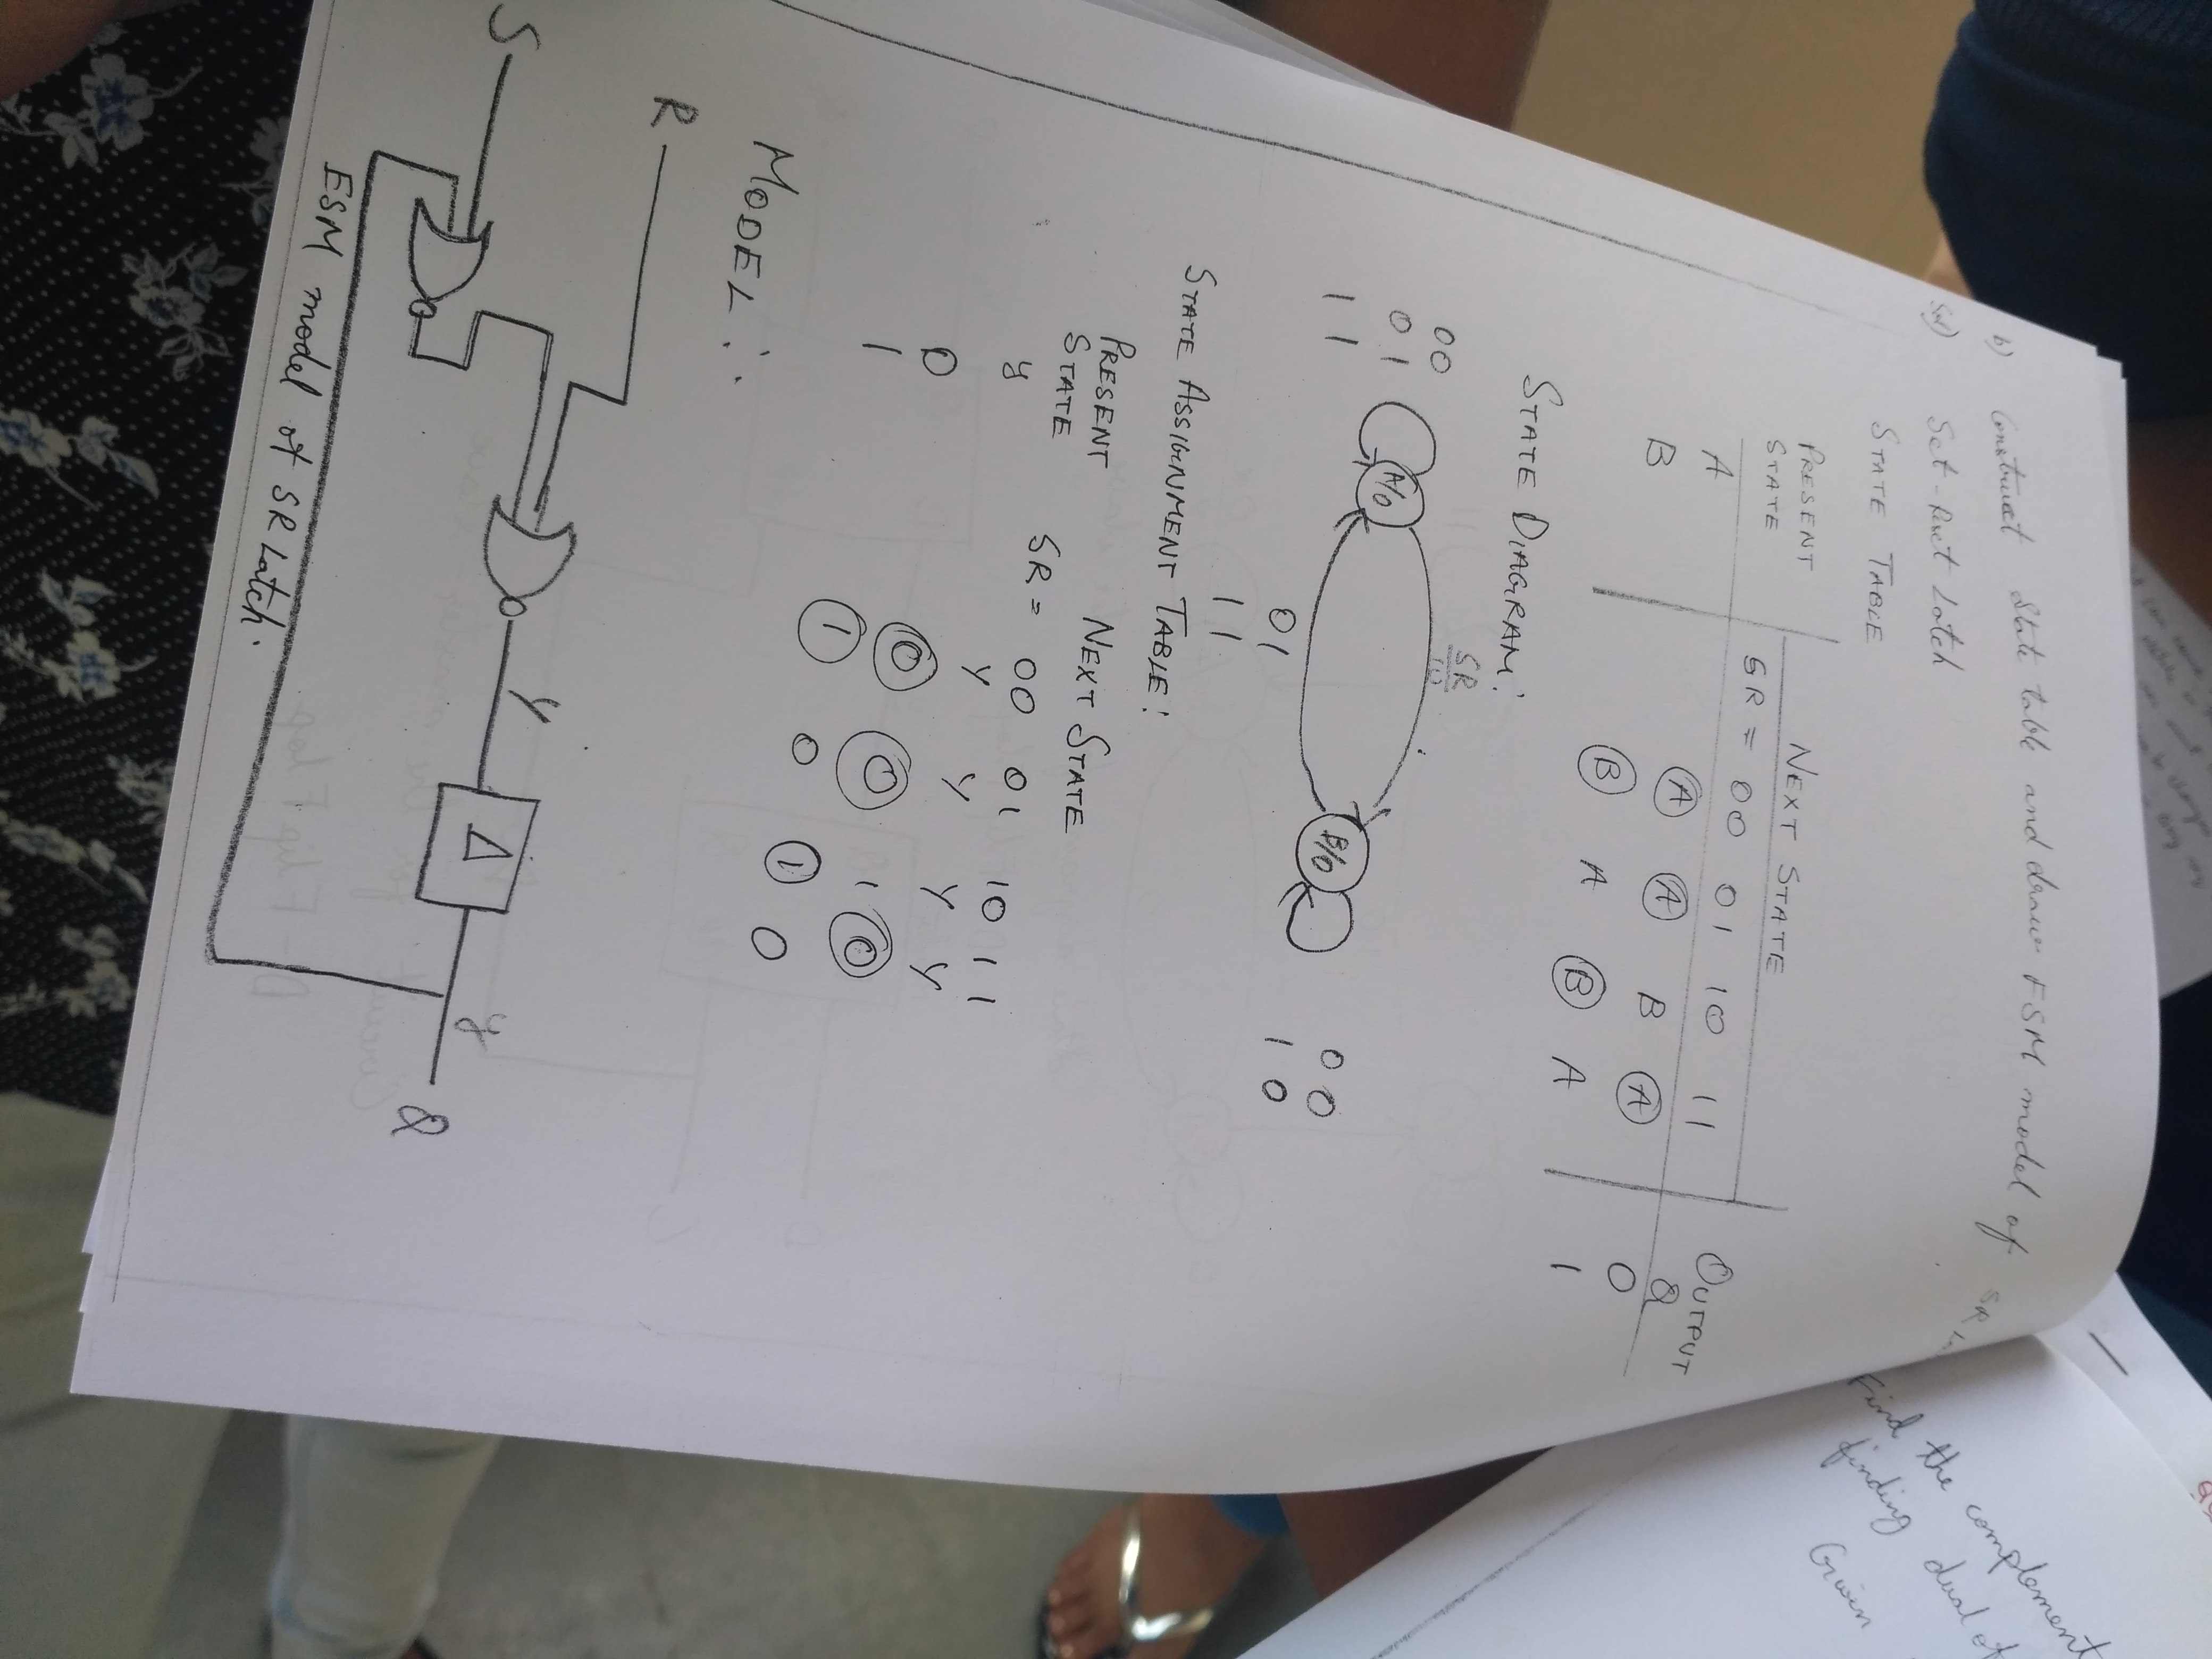 b) Construct State table and draw FSM model of
Set-Reset Latch
STATE TABLE
PRESENT STATE NEXT STATE OUTPUT
SR = 00 01 10 11 Q
A A A B A 0
B B A B A 1
STATE DIAGRAM:
SR
10
00
01
11
A/0
B/0
00
10
01
11
STATE ASSIGNMENT TABLE:
PRESENT STATE NEXT STATE
SR = 00 01 10 11
y Y Y Y Y
0 0 0 1 0
1 1 0 1 0
MODEL:
R
S
Y
Δ
y
Q
FSM model of SR Latch.
Find the complement
finding dual of
Given